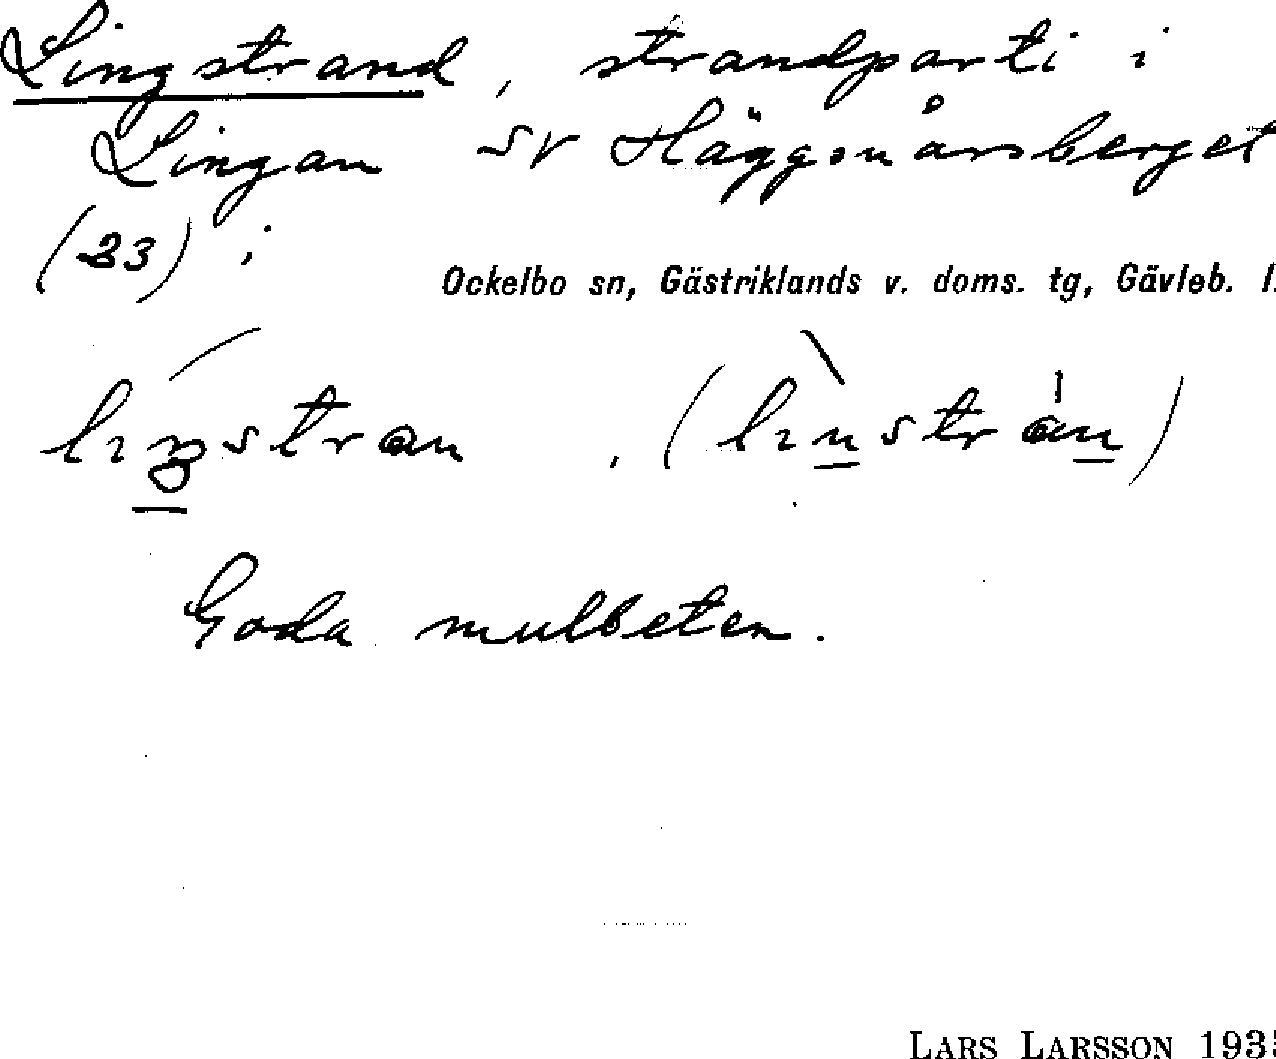 Lingstrand, strandparti i
Lingan SV Häggsnårsberget
(23) i
Ockelbo sn, Gästriklands v. doms. tg, Gävleb. l.
Goda mulbeten.
LARS LARSSON 193